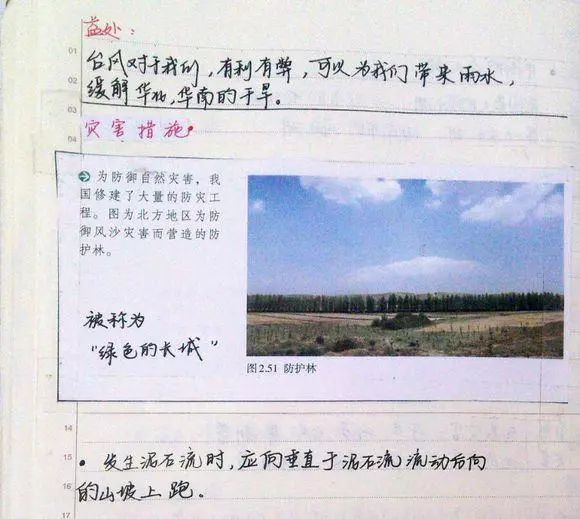 益处：
台风对于我们，有利有弊，可以为我们带来雨水，
缓解华北，华南的干旱。
灾害措施
为防御自然灾害，我
国修建了大量的防灾工
程。图为北方地区为防
御风沙灾害而营造的防
护林。
被称为
“绿色的长城”
图2.51 防护林
• 发生泥石流时，应向垂直于泥石流流动方向
的山坡上跑．
01
02
03
04
14
15
16
17